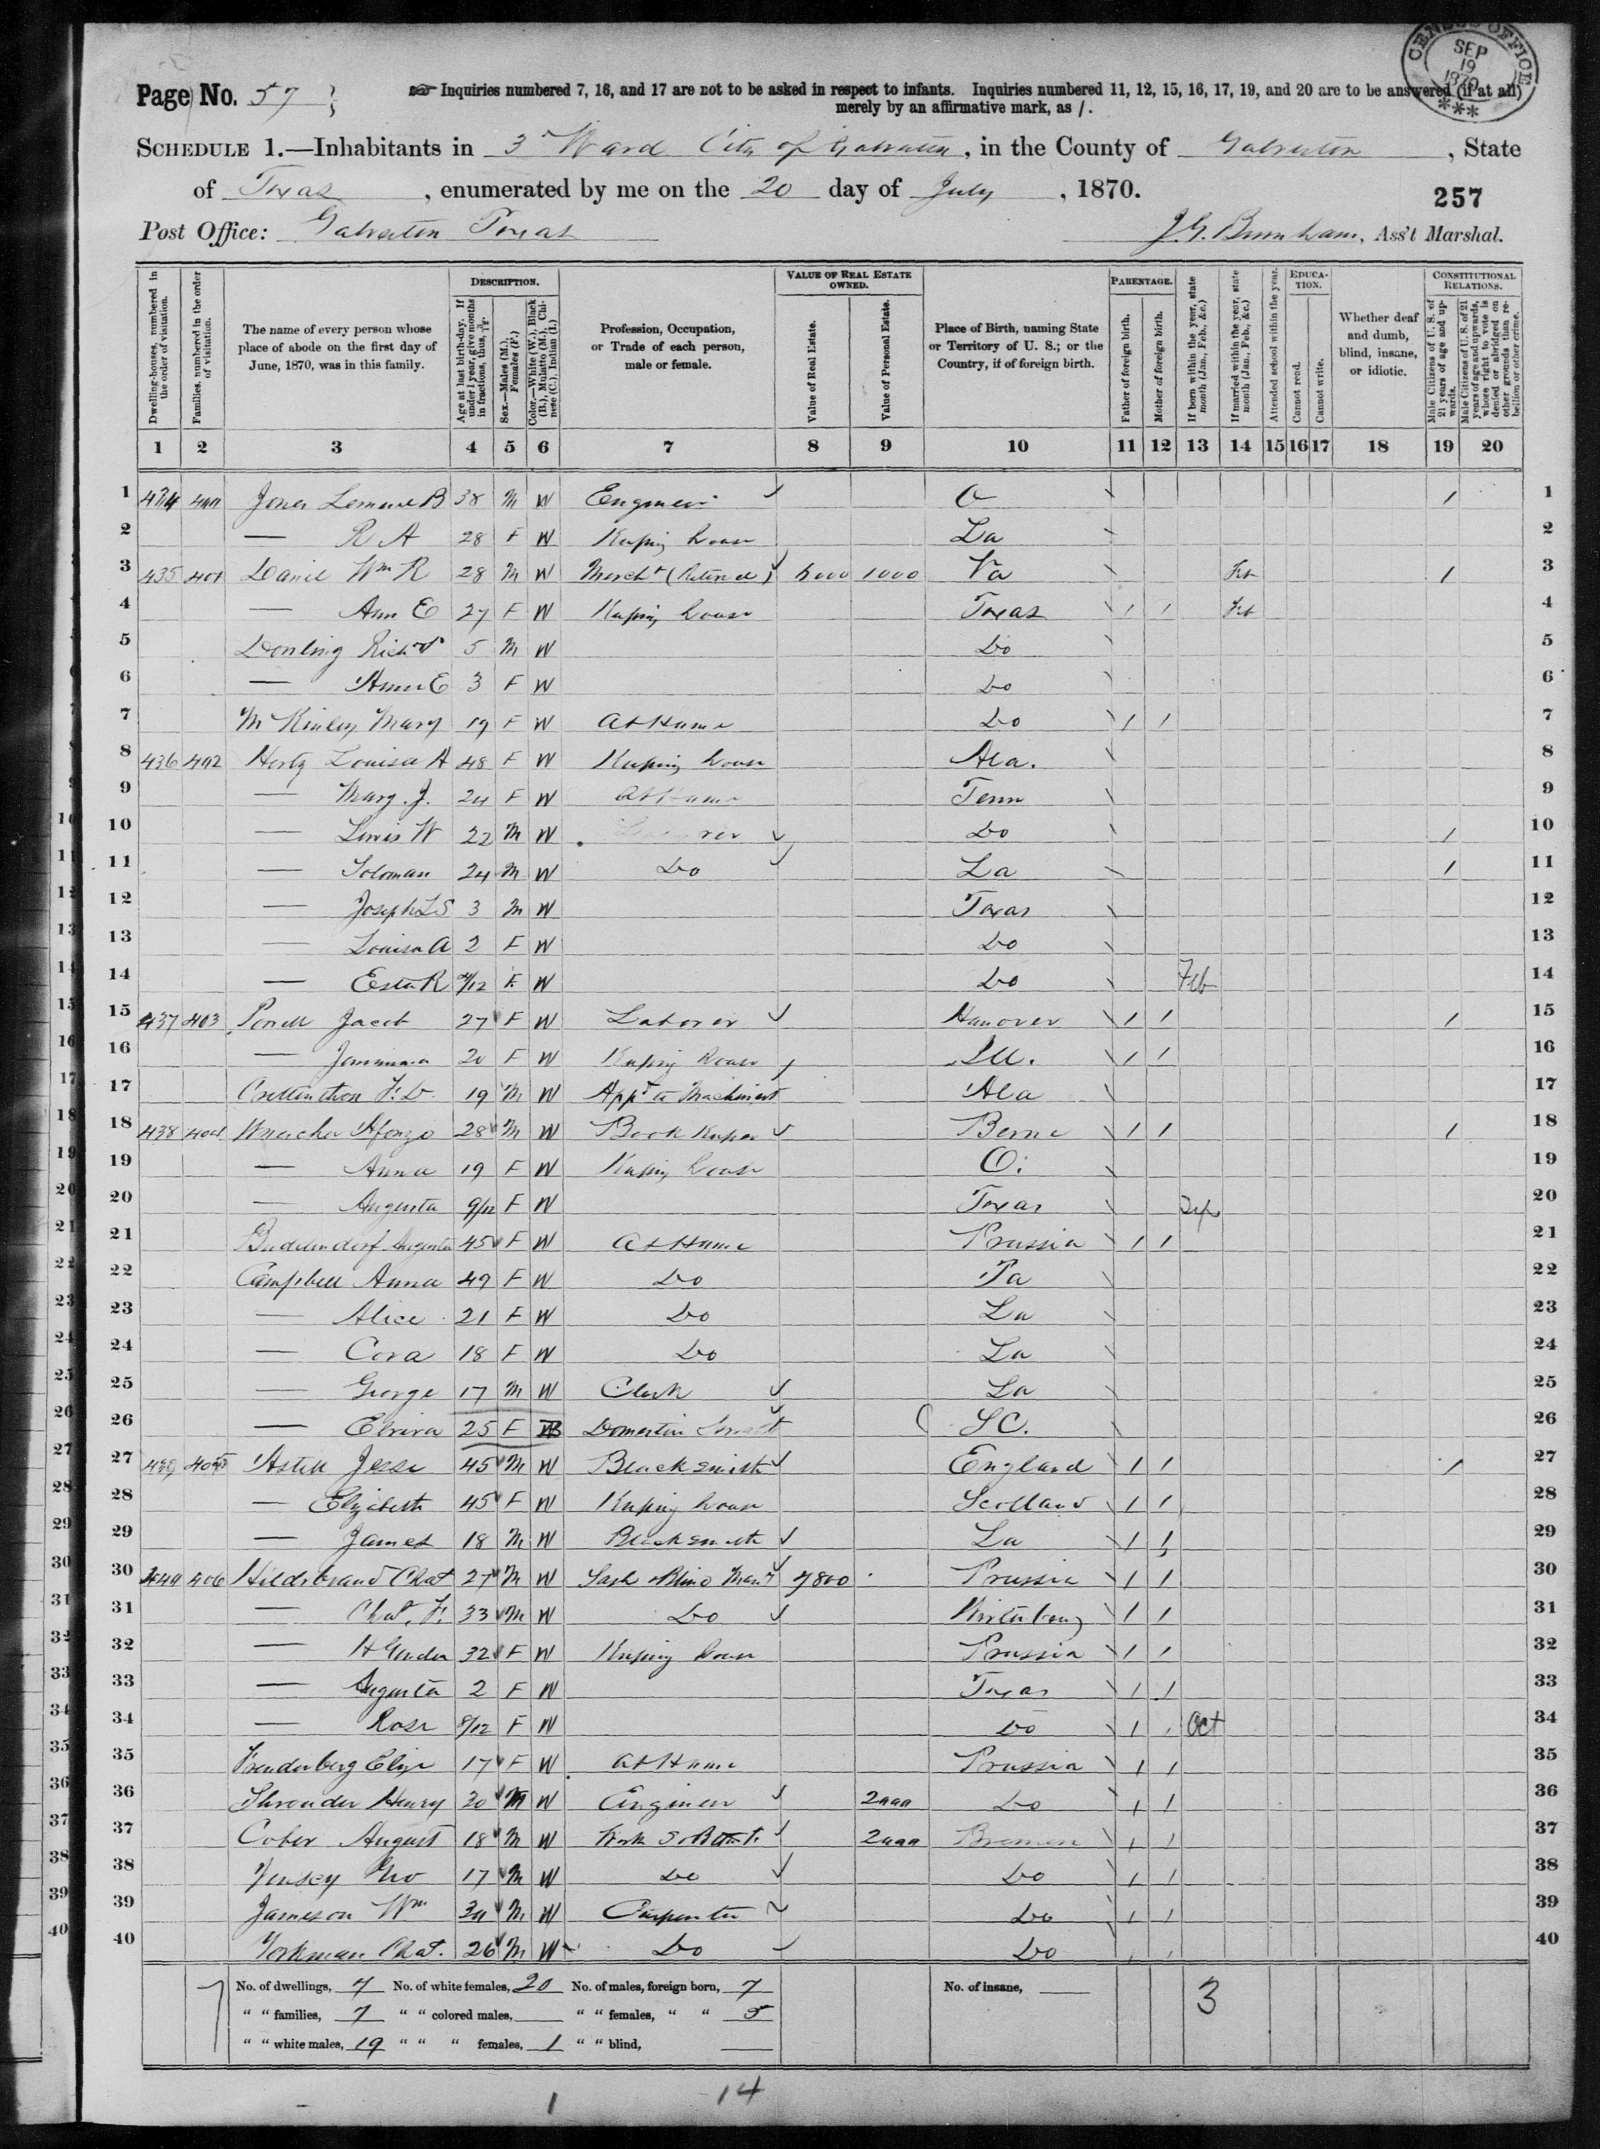 CENSUS OFFICE
SEP
19
1870
***
Page No. 57
Inquiries numbered 7, 16, and 17 are not to be asked in respect to infants. Inquiries numbered 11, 12, 15, 16, 17, 19, and 20 are to be answered (if at all)
merely by an affirmative mark, as /.
SCHEDULE 1.—Inhabitants in 3r Ward City of Galveston, in the County of Galveston, State
of Texas, enumerated by me on the 20 day of July, 1870.
257
Post Office: Galveston Texas J.G. Burnham, Ass't Marshal.
Dwelling-houses, numbered in the order of visitation.
Families, numbered in the order of visitation.
The name of every person whose place of abode on the first day of June, 1870, was in this family.
DESCRIPTION.
Age at last birth-day. If under 1 year, give months in fractions, thus, 3/12.
Sex.—Males (M.), Females (F.)
Color.—White (W.), Black (B.), Mulatto (M.), Chinese (C.), Indian (I.)
Profession, Occupation, or Trade of each person, male or female.
VALUE OF REAL ESTATE OWNED.
Value of Real Estate.
Value of Personal Estate.
Place of Birth, naming State or Territory of U. S.; or the Country, if of foreign birth.
PARENTAGE.
Father of foreign birth.
Mother of foreign birth.
If born within the year, state month (Jan., Feb., &c.)
If married within the year, state month (Jan., Feb., &c.)
Attended school within the year.
EDUCATION.
Cannot read.
Cannot write.
Whether deaf and dumb, blind, insane, or idiotic.
CONSTITUTIONAL RELATIONS.
Male Citizens of U. S. of 21 years of age and upwards.
Male Citizens of U. S. of 21 years of age and upwards, whose right to vote is denied or abridged on other grounds than rebellion or other crime.
1 2 3 4 5 6 7 8 9 10 11 12 13 14 15 16 17 18 19 20
1 Jones B 38 M W Engineer / 1
2 — R A 28 F W Keeping house La 2
3 435 401 Daniel Wm R 28 M W Mercht (Retired) 5000 1000 Va Feb / 3
4 — Ann E 27 F W Keeping house Texas / / Feb 4
5 Richd 5 M W Do 5
6 — Ann E 3 F W Do 6
7 McKinley Mary 19 F W At Home Do / / 7
8 436 402 Hertz Louisa A 48 F W Keeping house Ala. 8
9 — Mary J. 24 F W At Home Tenn 9
10 — Lewis W 22 M W Do / 10
11 — Soloman 24 M W Do La / 11
12 — Joseph L S 3 M W Texas 12
13 — Louisa A 2 F W Do 13
14 — R F W Do Feb 14
15 437 403 Jacob 27 F W Laborer Hanover / / / 15
16 — Jemimma 20 F W Keeping house Ill. / / 16
17 19 M W Appt to Machinist Ala 17
18 438 404 28 M W Book Keeper Berne / / / 18
19 — Anna 19 F W Keeping house O. 19
20 — Augusta 9/12 F W Texas 20
21 Augusta 45 F W At Home Prussia / / 21
22 Campbell Anna 49 F W Do Pa 22
23 — Alice 21 F W Do La 23
24 — Cora 18 F W Do La 24
25 — George 17 M W Clerk La 25
26 — Elvira 25 F B Domestic Servt S C. 26
27 439 405 Jesse 45 M W Blacksmith England / / / 27
28 — Elizabeth 45 F W Keeping house Scotland / / 28
29 — James 18 M W Blacksmith La / / 29
30 440 406 Hildebrand Chas 27 M W Sash & Blind Manf 7800 Prussia / / 30
31 — Chas. F. 33 M W Do Wirtenburg / / 31
32 — 32 F W Keeping house Prussia / / 32
33 — Augusta 2 F W Texas / / 33
34 — Rosa 8/12 F W Do / / Oct 34
35 Eliza 17 F W At Home Prussia / / 35
36 Shrouder Henry 30 M W Engineer 2000 Do / / 36
37 Cober August 18 M W Work 2000 Bremen / / 37
38 Geo 17 M W Do Do / / 38
39 Jameson Wm 30 M W Carpenter Do / / 39
40 Chas. 26 M W Do Do / / 40
No. of dwellings, 7 No. of white females, 20 No. of males, foreign born, 7 No. of insane, 3
" " families, 7 " " colored males, " " females, " " 5
" " white males, 19 " " " females, 1 " " blind,
1 14